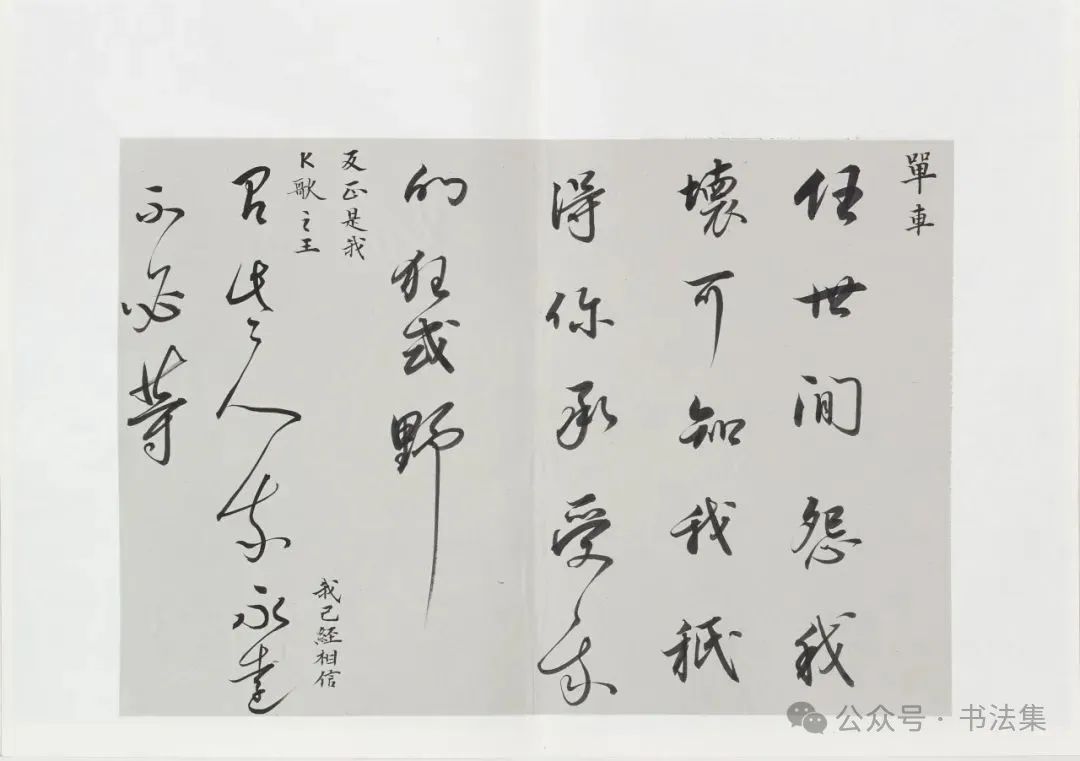 單車
任世間怨我
壞可知我秖
得你承受我
的狂或野
反正是我
K歌之王
我已經相信
有些人我永遠
不必等
公众号·书法集